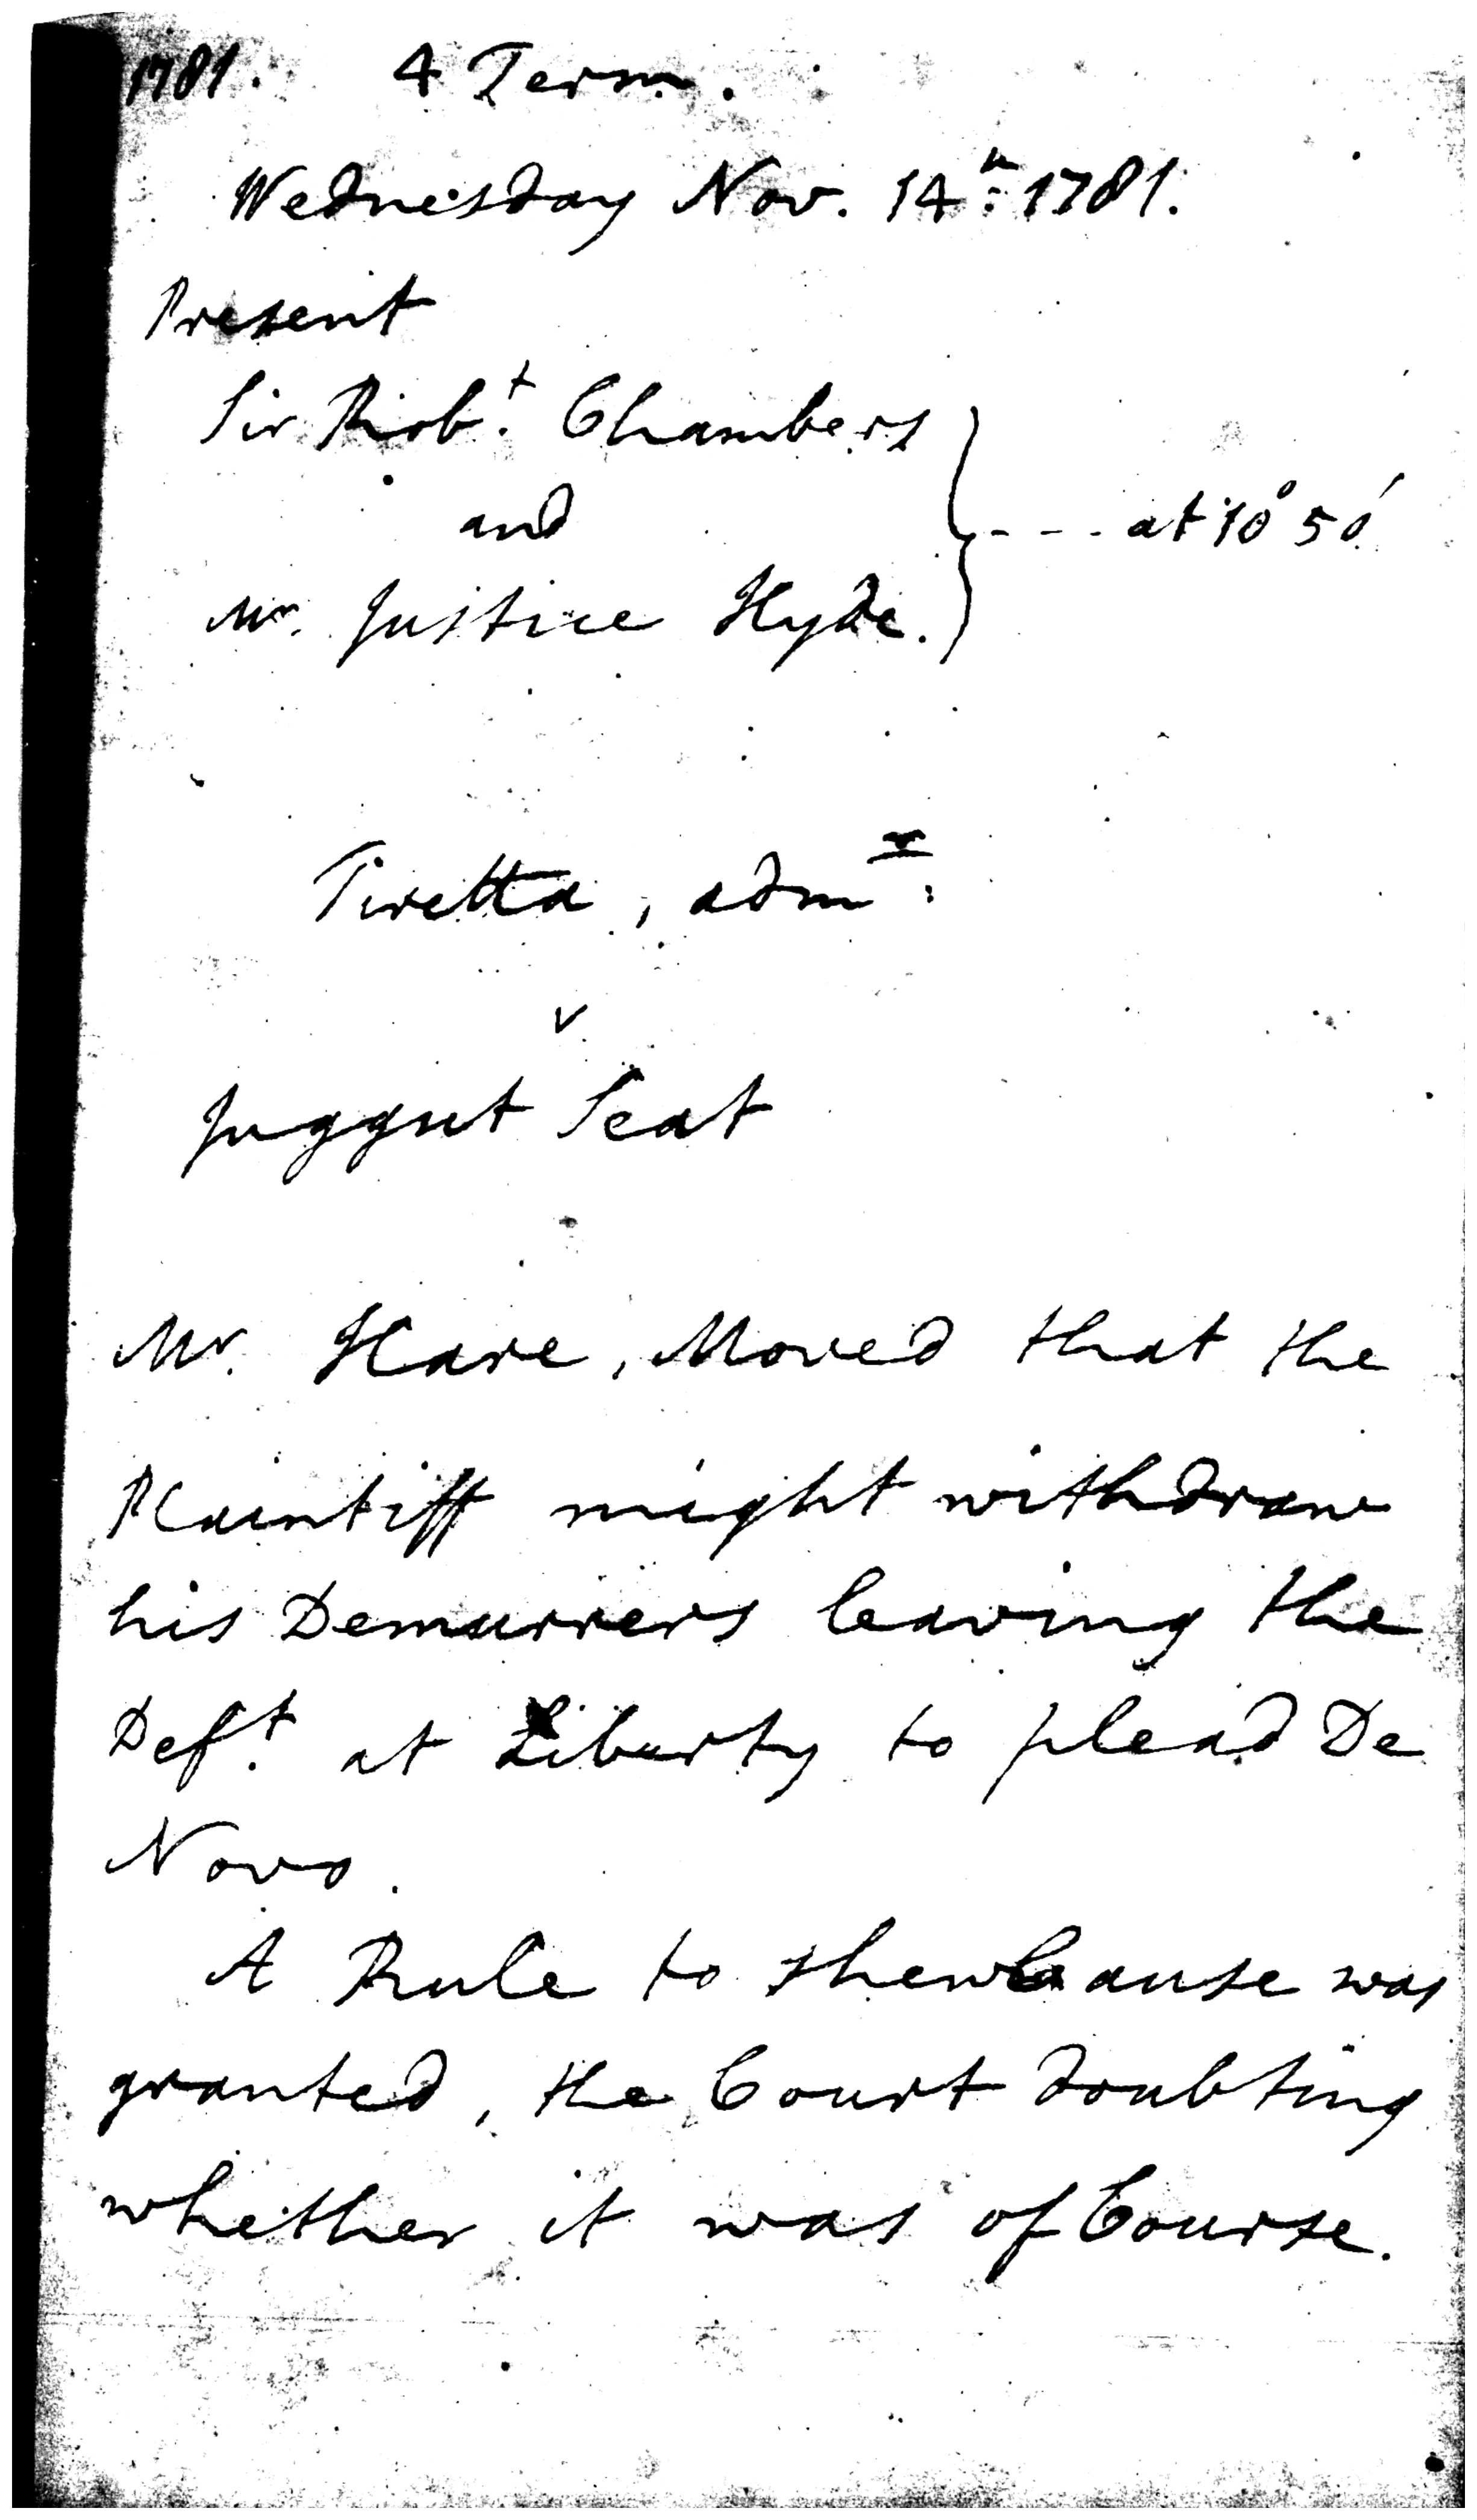 1781. 4 Term.
Wednesday Nov. 14th: 1781.
Present
Sir Robt. Chambers
and
- - - at 10° 50'
Mr. Justice Hyde.
Tiretta, admr:
v
Juggut Seat
Mr. Hare, Moved that the
Plaintiff might withdraw
his Demurrers leaving the
Deft. at Liberty to plead De
Novo.
A Rule to shew Cause was
granted, the Court doubting
whether it was of Course.